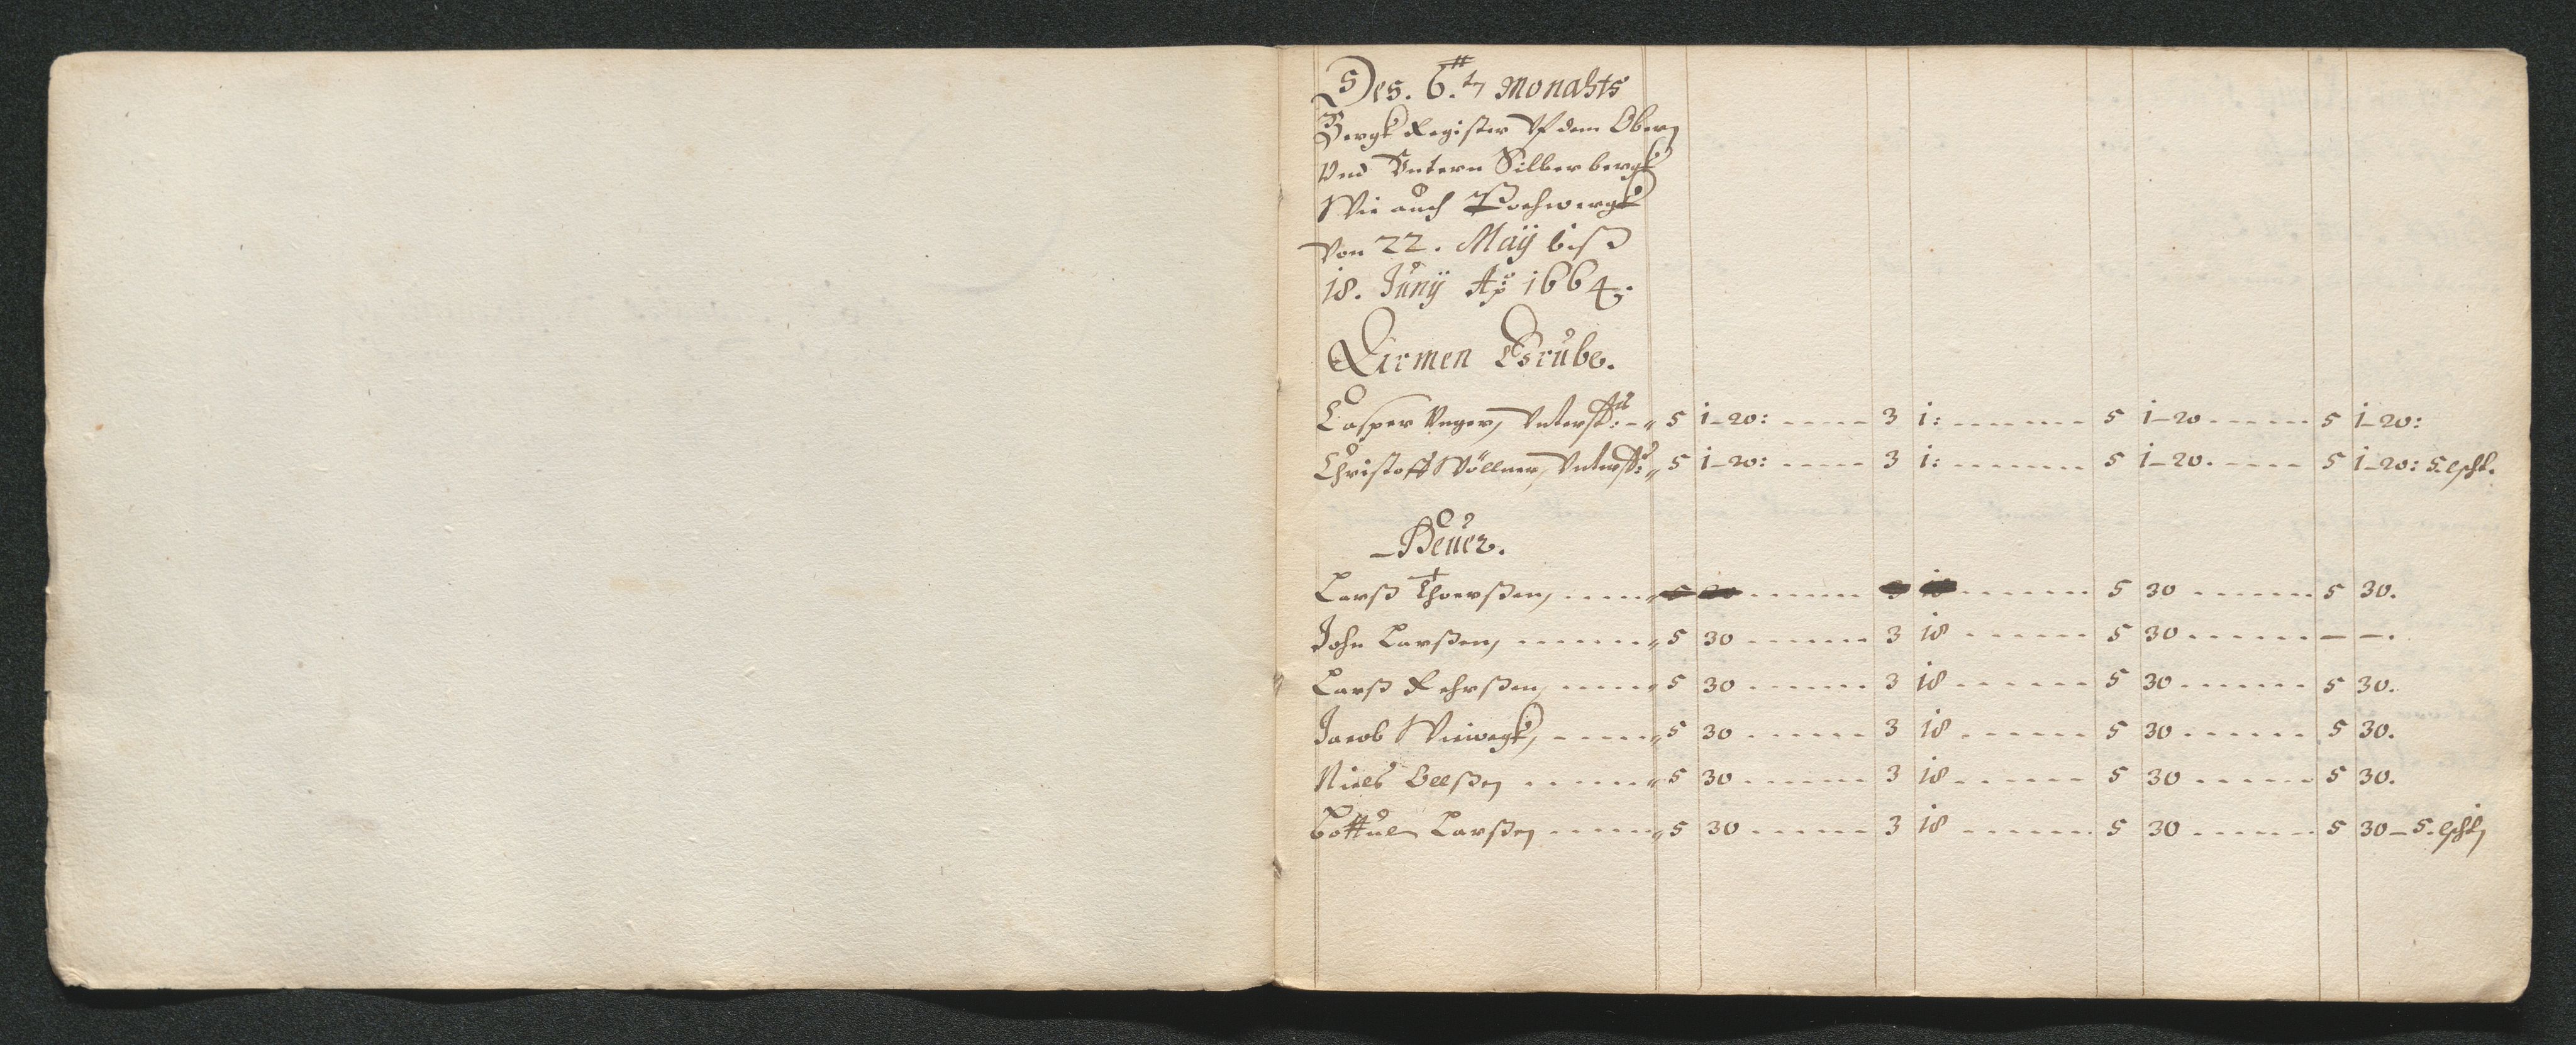 Des. 6.tn Monahts
Bergk Register Vf dem Obern
Vnd Vntern Silberbergk
Wie auch Pochwergk
Von 22. Maÿ biß
18. Junÿ Ao 1664:
Armen Grube.
Casper Unger, Unterst: - " 5 1-20: ----- 3 1: ------- 5 1-20 ----- 5 1-20:
Christoff Wöllner, Unterst: " 5 1-20: ----- 3 1: ------- 5 1-20. ---- 5 1-20: 5. lsht.
Heuer.
Larß Thoerßen, ----- " ------ ------- 5 30 ------- 5 30.
John Larßen, ------- " 5 30 ------ 3 18 ------ 5 30 ------ — —.
Larß Rehrßen, ----- " 5 30 ------ 3 18 ------ 5 30 ------ 5 30.
Jacob Viewegk, ----- " 5 30 ------ 3 18 ------ 5 30 ------ 5 30.
Niels Oelßen ------ " 5 30 ------ 3 18 ------ 5 30 ------ 5 30.
Bottuel Larßen ------ " 5 30 ------ 3 18 ------- 5 30 ------ 5 30 - 5. lsht,